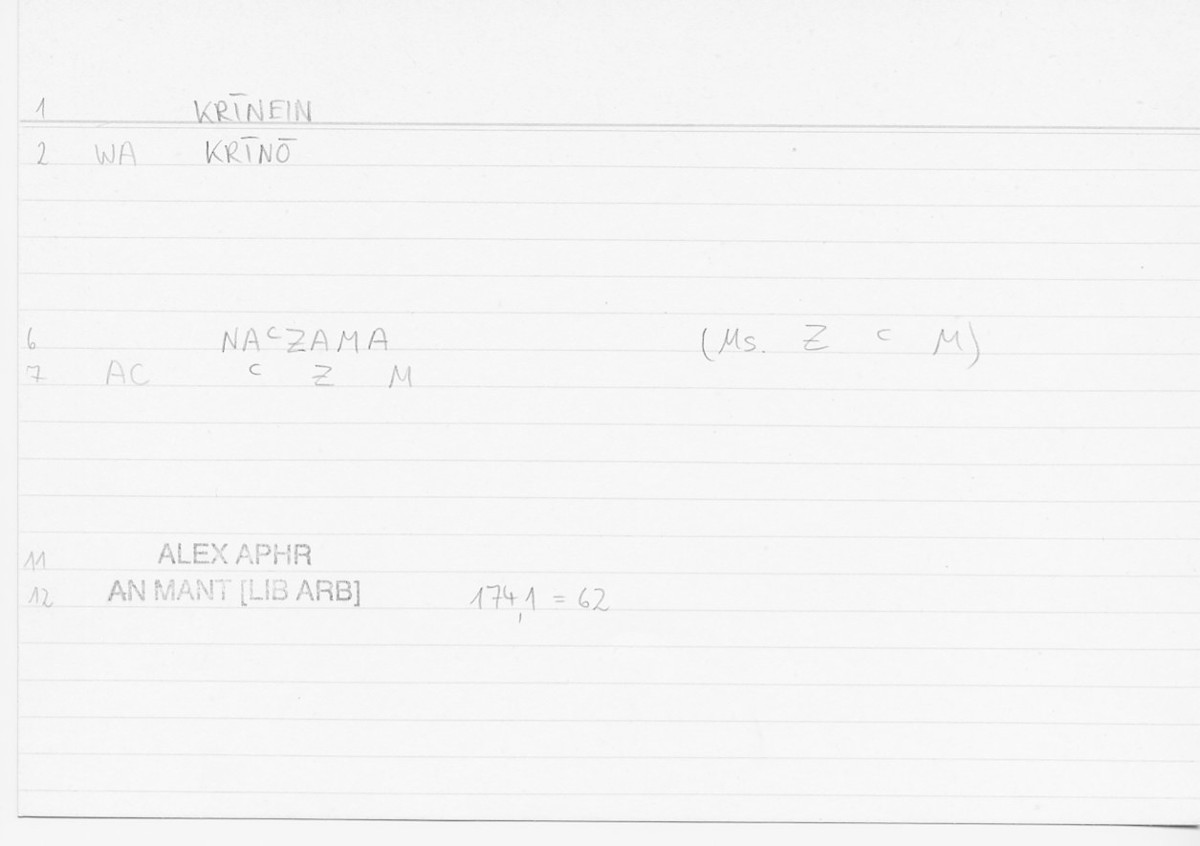 1 KRĪNEIN
2 WA KRĪNŌ
6 NAᶜZAMA (Ms. Z ᶜ M)
7 AC ᶜ Z M
11 ALEX APHR
12 AN MANT [LIB ARB] 174,1 = 62